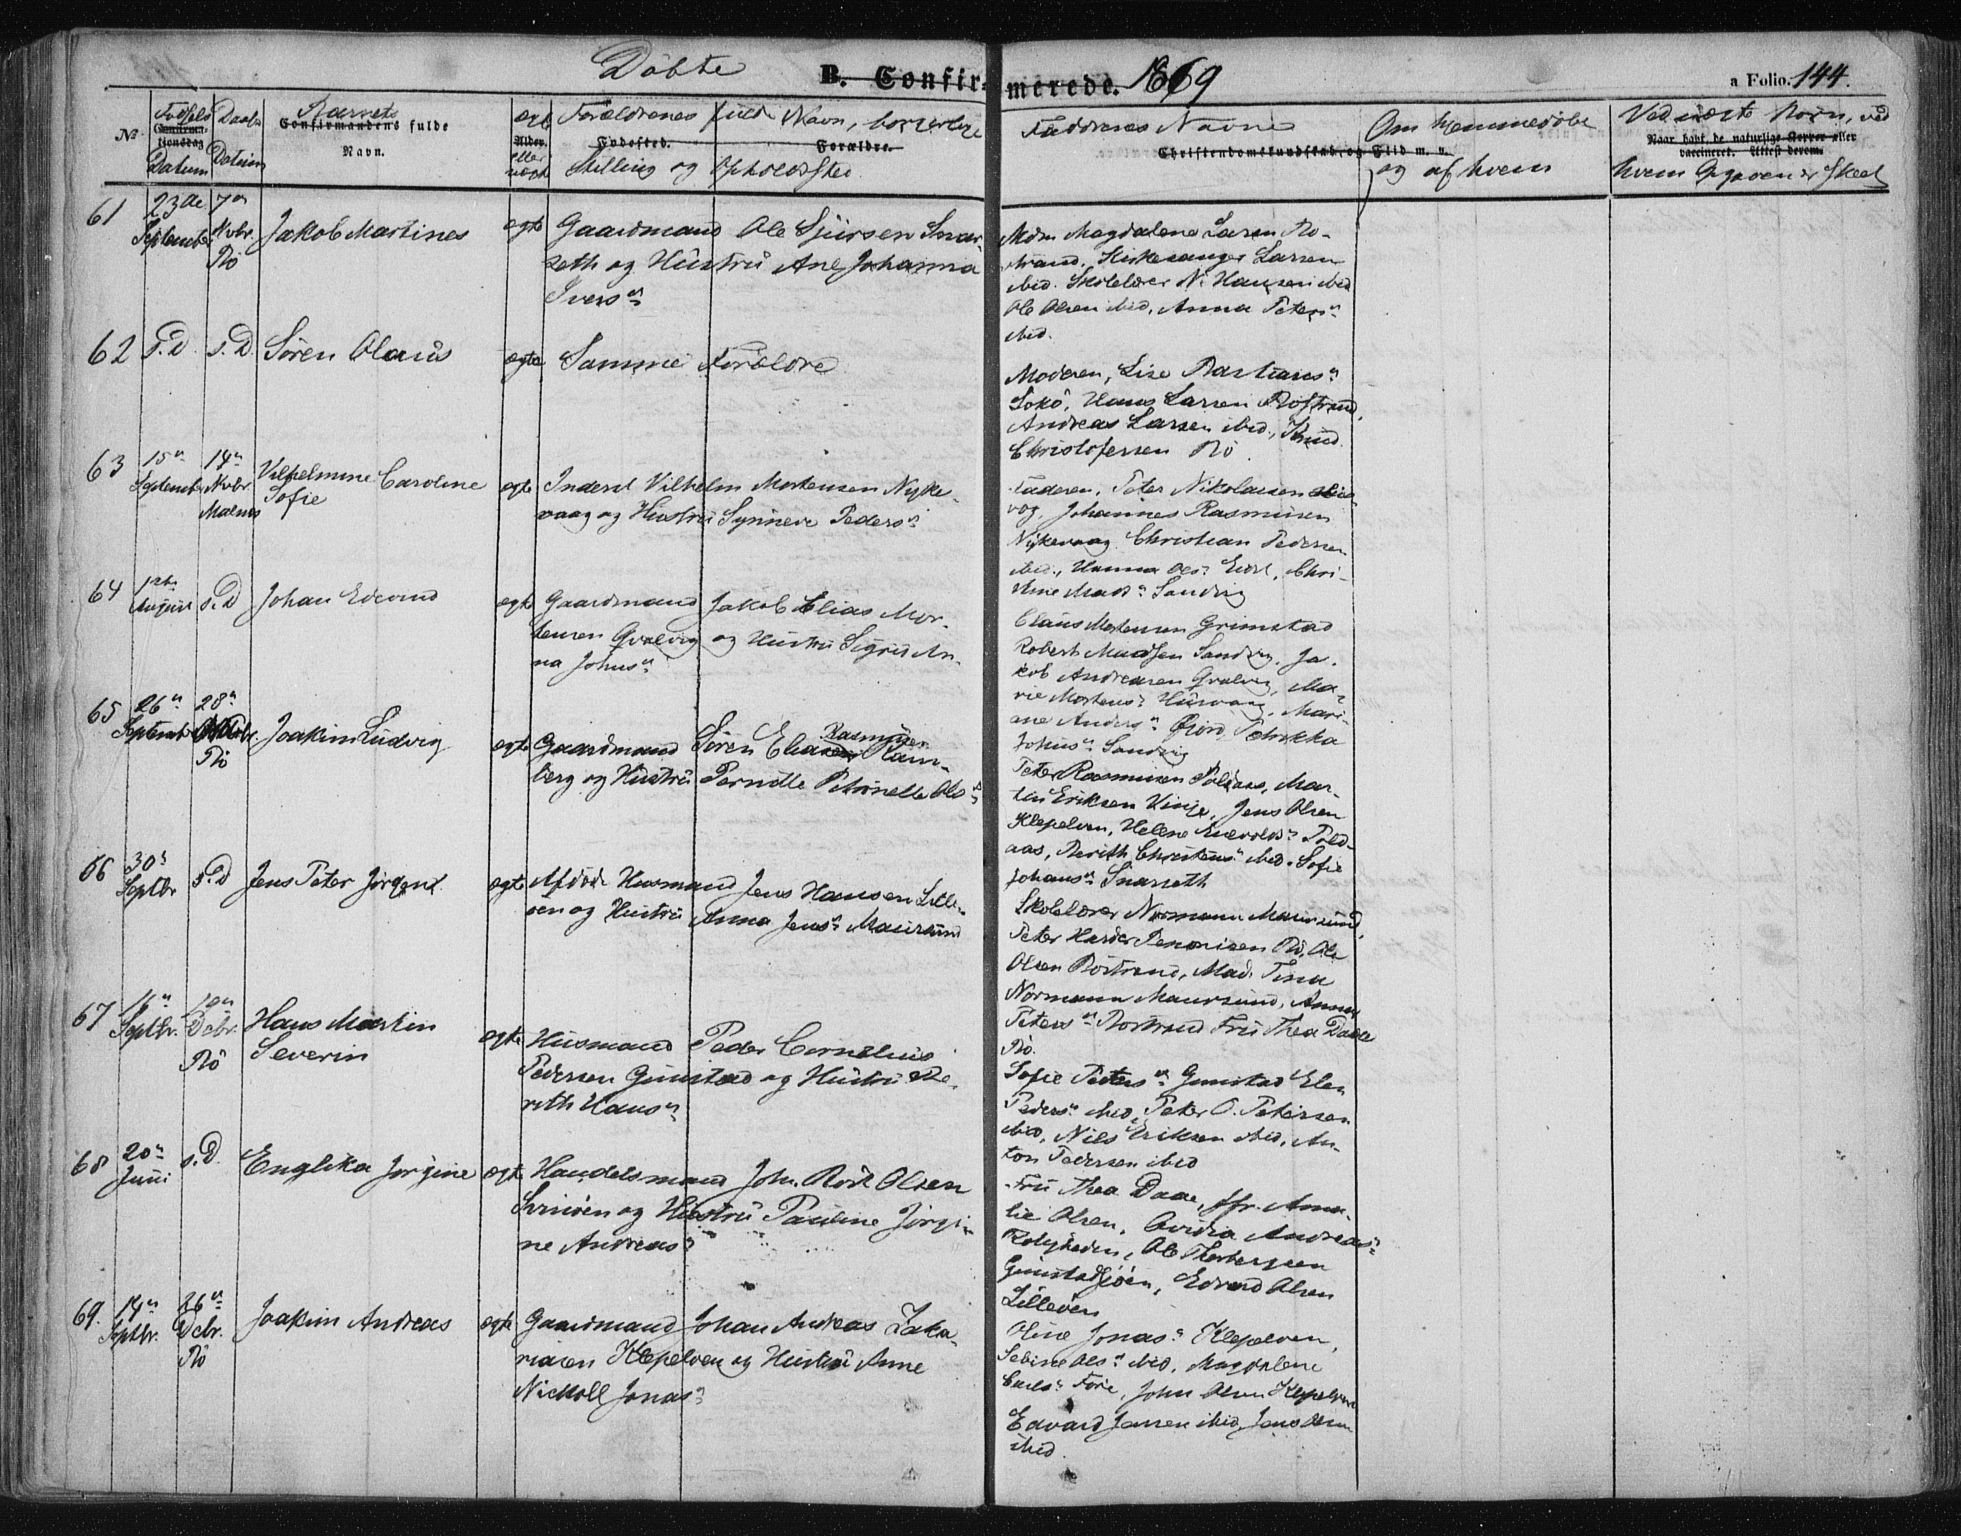 Döbte B. Confirmerede. 1869 a Folio. 144.
No. Fødsels Datum Daabs Datum Barnets fulde Navn. ægte eller uægte Forældrenes fulde Navn, borgerlige Stilling og Opholdsted Faddernes Navne Om hjemmedøbt og af hvem
Confirmandens fulde Navn. Alder. Fødested. Forældre. Christendomskundskab og Flid m. v. Naar havt de naturlige Kopper eller vaccineret. Attest derom.
61 23de September 7de Nvbr. Rö Jakob Martines ægte Gaardmand Ole Sjursen Snar-
seth og Hustru Ane Johanna
Ivers
Mdm Magdalena Larsen Rö-
strand, Kirkesanger Larsen
ibid. Skolelærer N. Hansen ibid
Ole Olsen ibid, Anna Peters
ibid.
62 s. D. s. D. Sören Olaus ægte Samme Forældre
Moderen, Lise Bastians
Hans Larsen Röstrand,
Andreas Larsen ibid, Knud
Christofersen Rö.
63 15 September 14 Nvbr. Malnes Vilhelmine Caroline
Sofie ægte Inderst Vilhelm Mortensen Nyke-
vaag og Hustru Synneve Peders
Faderen, Peter Nikolaisen
vog, Johannes Rasmusen
Nykevaag, Christian Pedersen
ibid, Hanna Ols Chri-
stine Mads Sandvig
64 1ste August s. D Johan Edvard ægte Gaardmand Jakob Elias Mor-
tensen Qvalvig og Hustru Sigrid An-
na Johns
Claus Mortensen Grimstad
Robert Madsen Sandvig, Ja-
kob Andreasen Qvalvig, Ma-
rie Mortens Husvaag, Mari-
ane Anders Petrikka
Johns Sandvig
65 26 September 28 Nvbr. Rö Joakim Ludvig ægte Gaardmand Sören Eliasen Rasmusen Ram-
berg og Hustru Pernille Petronelle Ols
Peter Rasmusen Polaas, Mar-
tin Eriksen Vinje, Jens Olsen
Klepelven, Helene Enevolds Pold-
aas, Berith Christens ibid. Sofie
Johans Snarseth
66 30 Septbr s. D Jens Peter Jörgen ægte Afdöde Husmand Jens Hansen Lille-
öen og Hustru Anna Jens Maursund
Skolelærer Normann Maursund,
Peter Harder Rö, Ole
Olsen Röstrand, Mad. Tina
Normann Maursund, Anna
Peters Röstrand Fru Thea Daae
Rö.
67 16 Septbr. Dcbr. Rö Hans Martin
Severin ægte Husmand Peder Cornelius
Pedersen Guustad og Hustru Be-
rith Hans
Sofie Peters Guustad Elen
Peders ibid, Peter O. Petersen
ibid, Nils Eriksen ibid, An-
ton Pedersen ibid
68 20 Juni s. D. Englika Jörgine ægte Handelsmand John Röst Olsen
Svinöen og Hustru Pauline Jörgi-
ne Andreas
Fru Thea Daae, Jfr. Ama-
lie Olsen, Andreas
Roligheden, Ole Thorbersen
Guustadsjöen, Edvard Olsen
Lilleöen
69. 14 Septbr. 26 Dcbr. Rö Joakim Andreas ægte Gaardmand Johan Andreas Zaka-
riasen Klepelven og Hustru Anne
Nickoll Jonas
Oline Jonas Klepelven,
Sebine Ols ibid, Magdalene
Carls Före, John Olsen Klepelven
Edvard Jansen ibid, Jens Olsen
ibid.